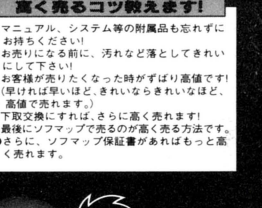 高く売るコツ教えます!
マニュアル、システム等の附属品も忘れずに
お持ちください!
お売りになる前に、汚れなど落としてきれい
にして下さい!
お客様が売りたくなった時がずばり高値です!
(早ければ早いほど、きれいならきれいなほど、
高値で売れます。)
下取交換にすれば、さらに高く売れます!
最後にソフマップで売るのが高く売る方法です。
さらに、ソフマップ保証書があればもっと高
く売れます。